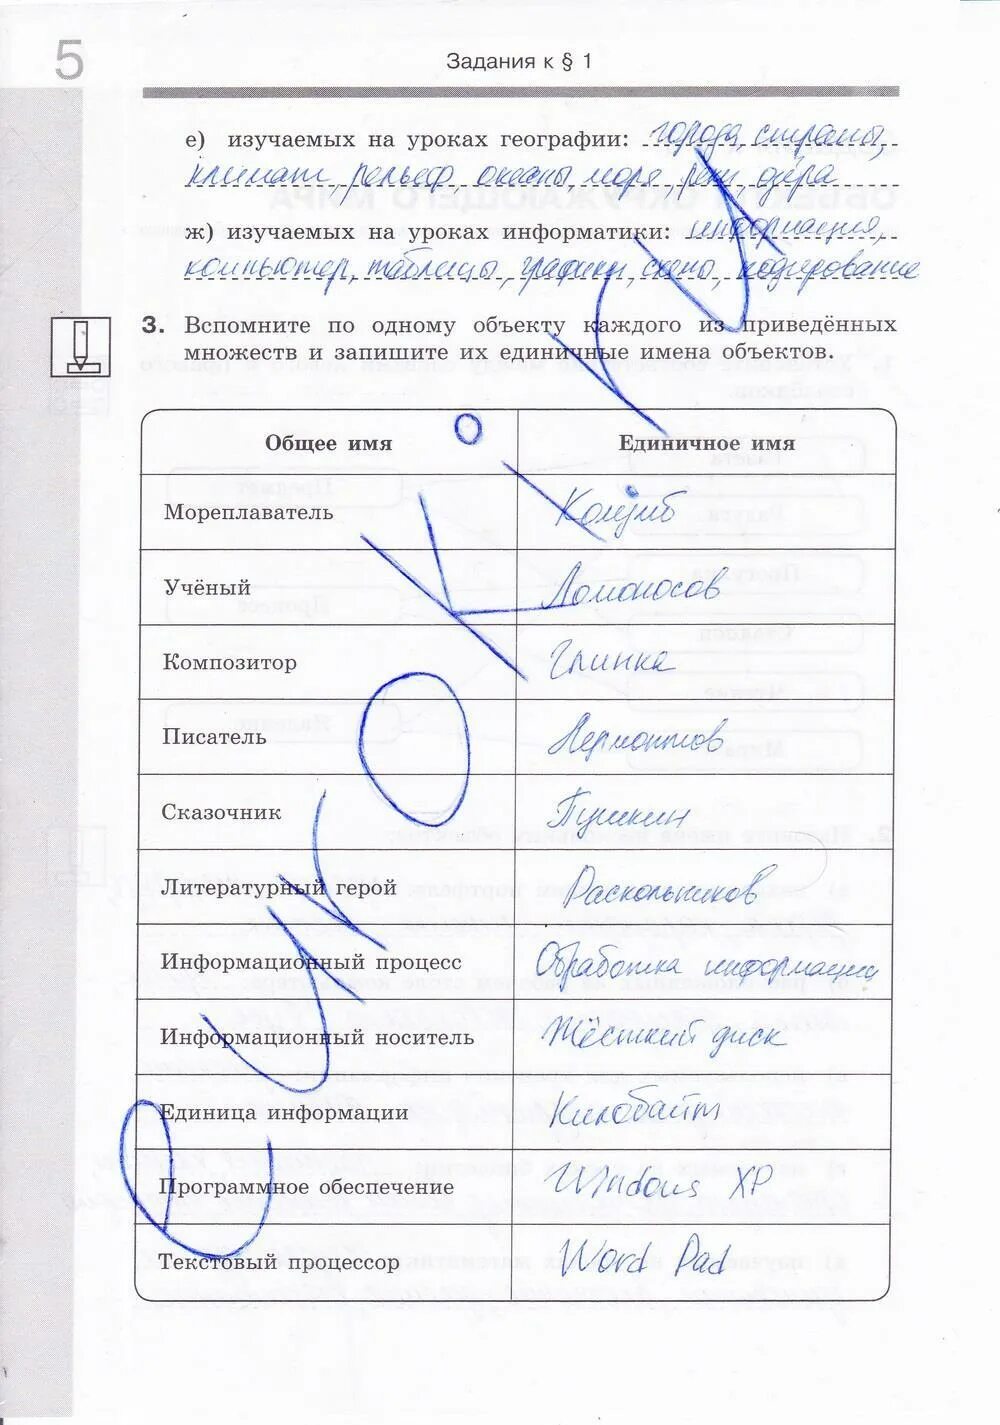 5
Задания к § 1
е) изучаемых на уроках географии: города, страны,
климат, рельеф, океаны, моря, реки, озёра
ж) изучаемых на уроках информатики: информация,
компьютер, таблицы, графики, схемы, кодирование
3. Вспомните по одному объекту каждого из приведённых
множеств и запишите их единичные имена объектов.
Общее имя Единичное имя
Мореплаватель Колумб
Учёный Ломоносов
Композитор Глинка
Писатель Лермонтов
Сказочник Пушкин
Литературный герой Раскольников
Информационный процесс Обработка информации
Информационный носитель Жёсткий диск
Единица информации Килобайт
Программное обеспечение Windows XP
Текстовый процессор Word Pad